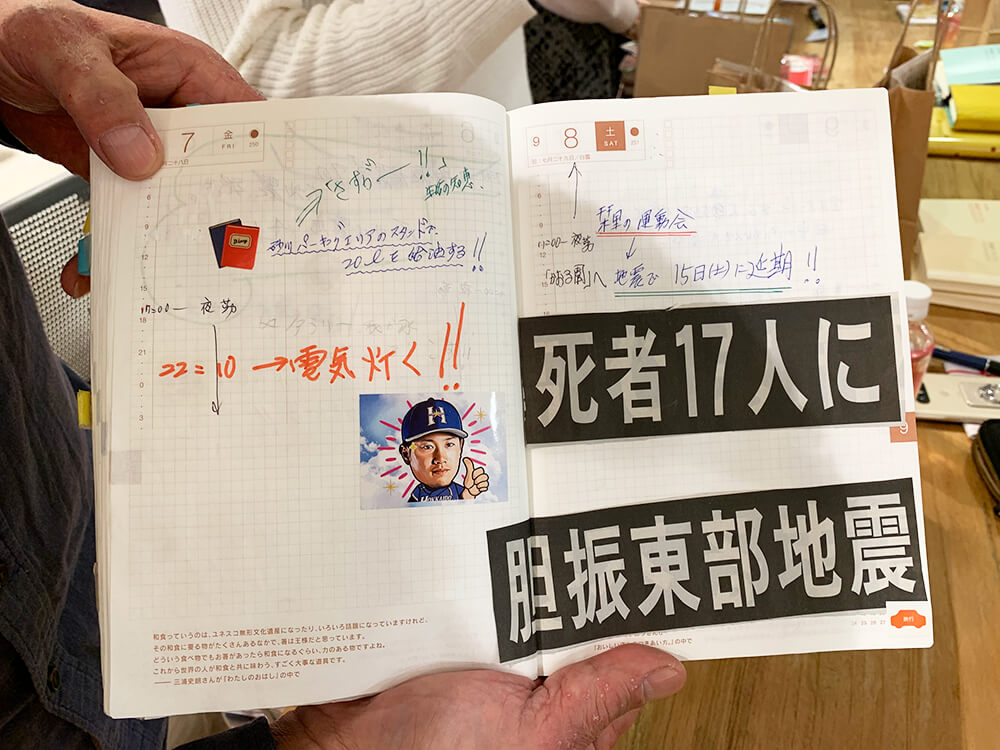 7 金 FRI 250
二十八日
さずらー!!
砂川パーキングエリアのスタンドで、
20ℓを給油する!!
17:00ー夜勤
22:10→電気灯く!!
H
和食っていうのは、ユネスコ無形文化遺産になったり、いろいろ話題になっていますけれど、
その和食に要る物がたくさんあるなかで、箸は王様だと思っています。
どういう食べ物でもお箸があったら和食になるぐらい、力のある物ですよね。
これから世界の人が和食と共に味わう、すごく大事な道具です。
—— 三浦史朗さんが『わたしのおはし』の中で
9 8 土 SAT 251
七月二十九日/白露
栞里の運動会
17:00ー夜勤
地震で 15日(土)に延期!!
死者17人に
胆振東部地震
9
24 25 26 27
旅行
の中で